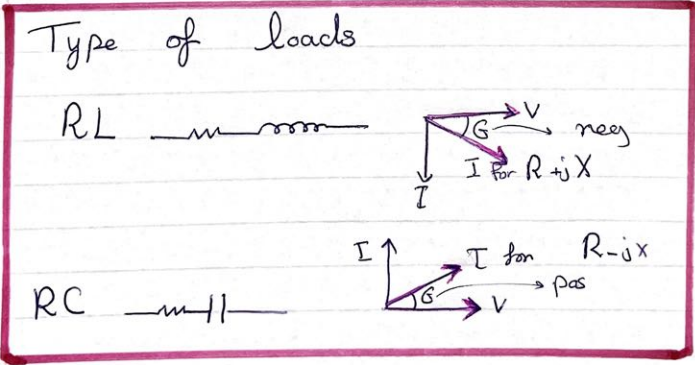 Type of loads
RL
V
G
neg
I for R+jX
I
I
I for R-jx
G
pos
RC
V